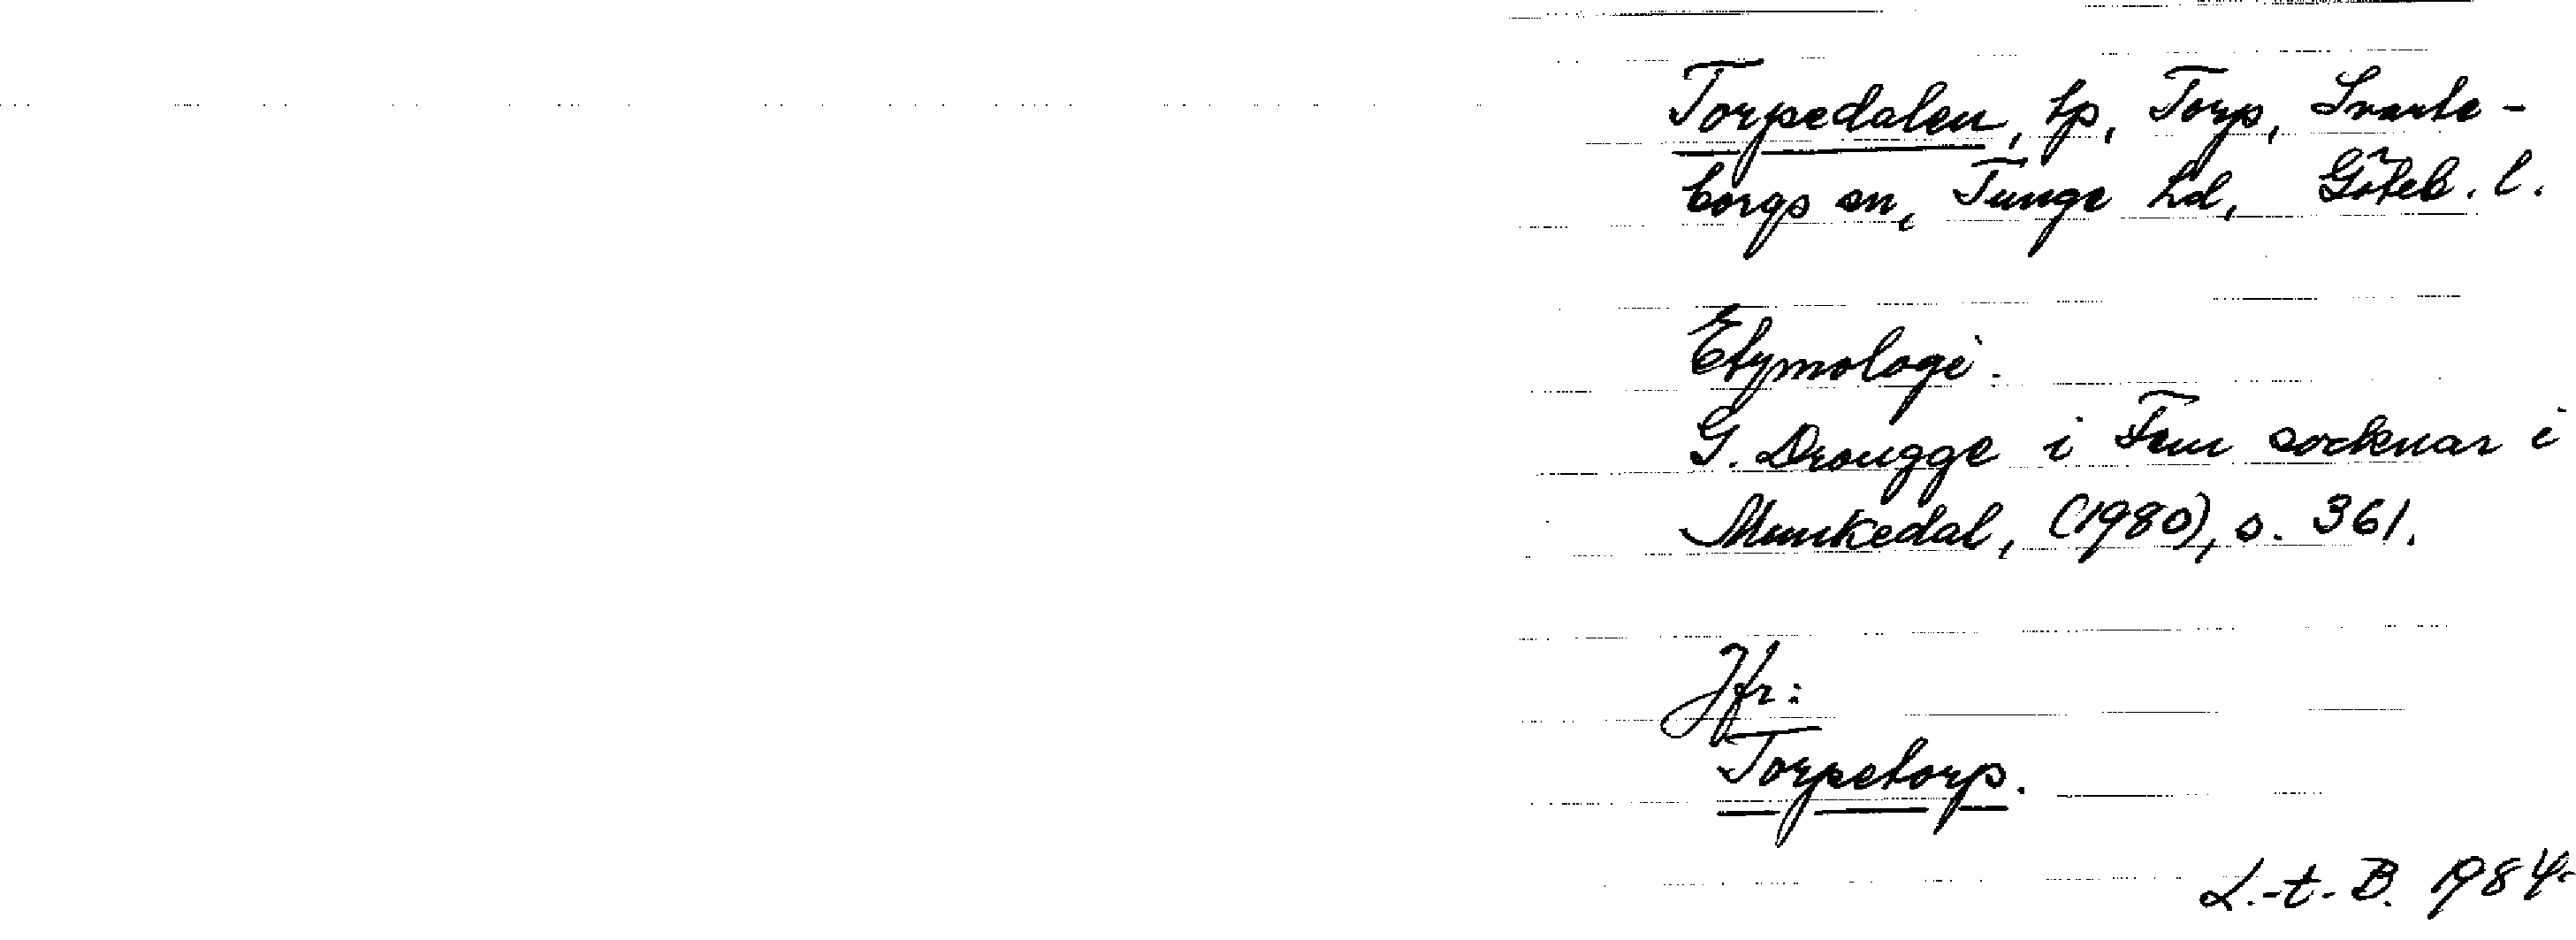 Torpedalen, tp, Torp, Svarte-
borgs sn, Tunge hd, Göteb. l.
Etymologi.
G. Drougge i Fem socknar i
Munkedal, (1980), s. 361.
Jfr:
Torpetorp.
L.-t. B. 1984.